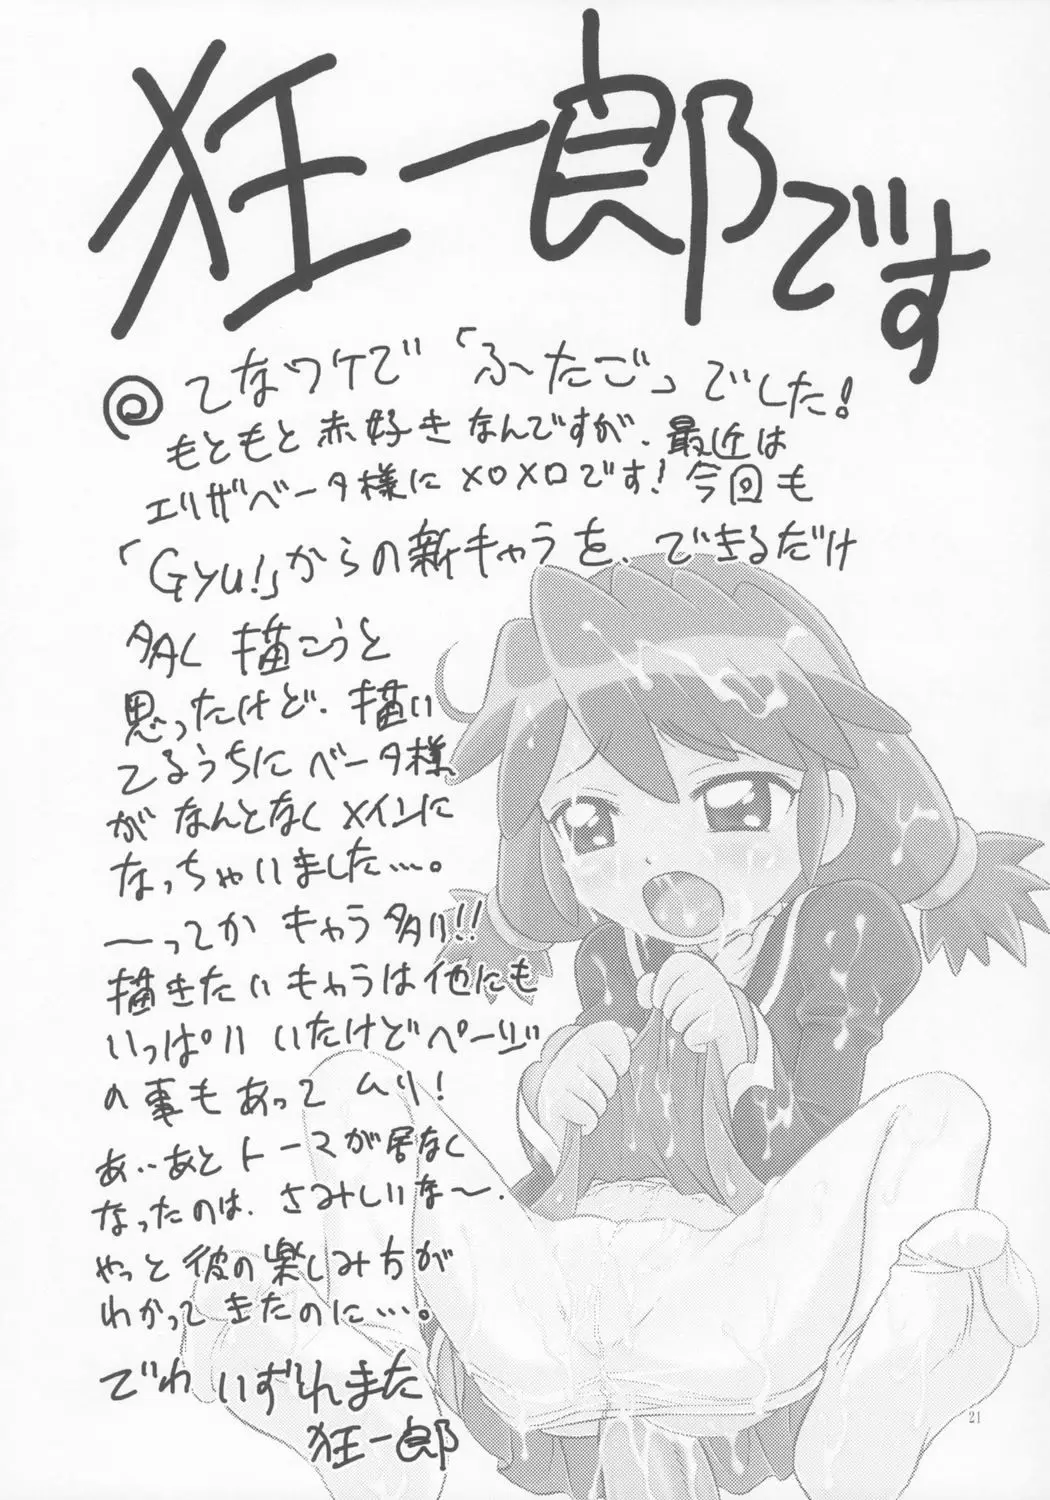 狂一郎です
@てなワケで「ふたご」でした!
もともと赤好きなんですが、最近は
エリザベータ様にメロメロです!今回も
「Gyu!」からの新キャラを、できるだけ
多く描こうと
思ったけど、描い
てるうちにベータ様
がなんとなくメインに
なっちゃいました…。
ーってかキャラ多い!!
描きたいキャラは他にも
いっぱいいたけどページ
の事もあってムリ!
あ、あとトーマが居なく
なったのは、さみしいな〜。
やっと彼の楽しみ方が
わかってきたのに…。
でわいずれまた
狂一郎
21